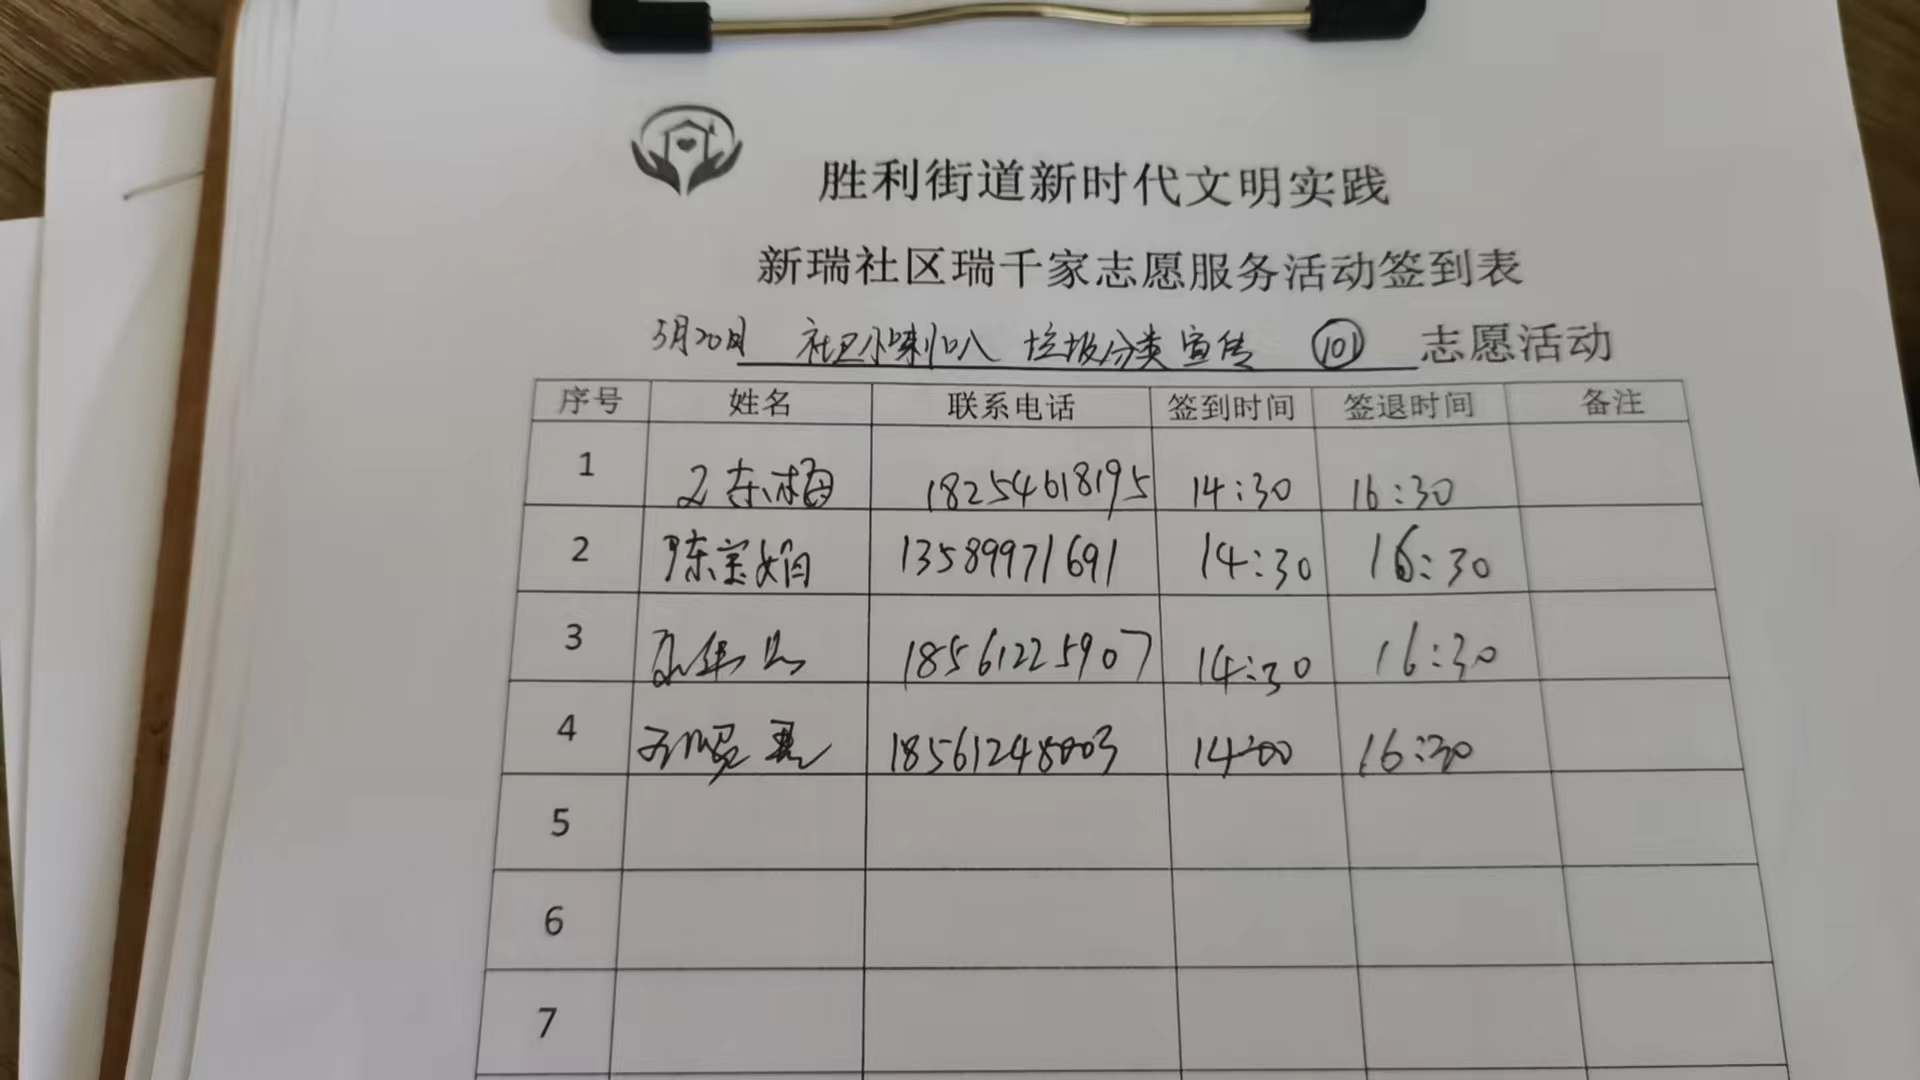 胜利街道新时代文明实践
新瑞社区瑞千家志愿服务活动签到表
5月20日 社区小喇叭 垃圾分类宣传 101 志愿活动
序号 姓名 联系电话 签到时间 签退时间 备注
1 东梅 18254618195 14:30 16:30
2 陈宝娟 13589971691 14:30 16:30
3 18561225907 14:30 16:30
4 18561248003 14:00 16:30
5
6
7